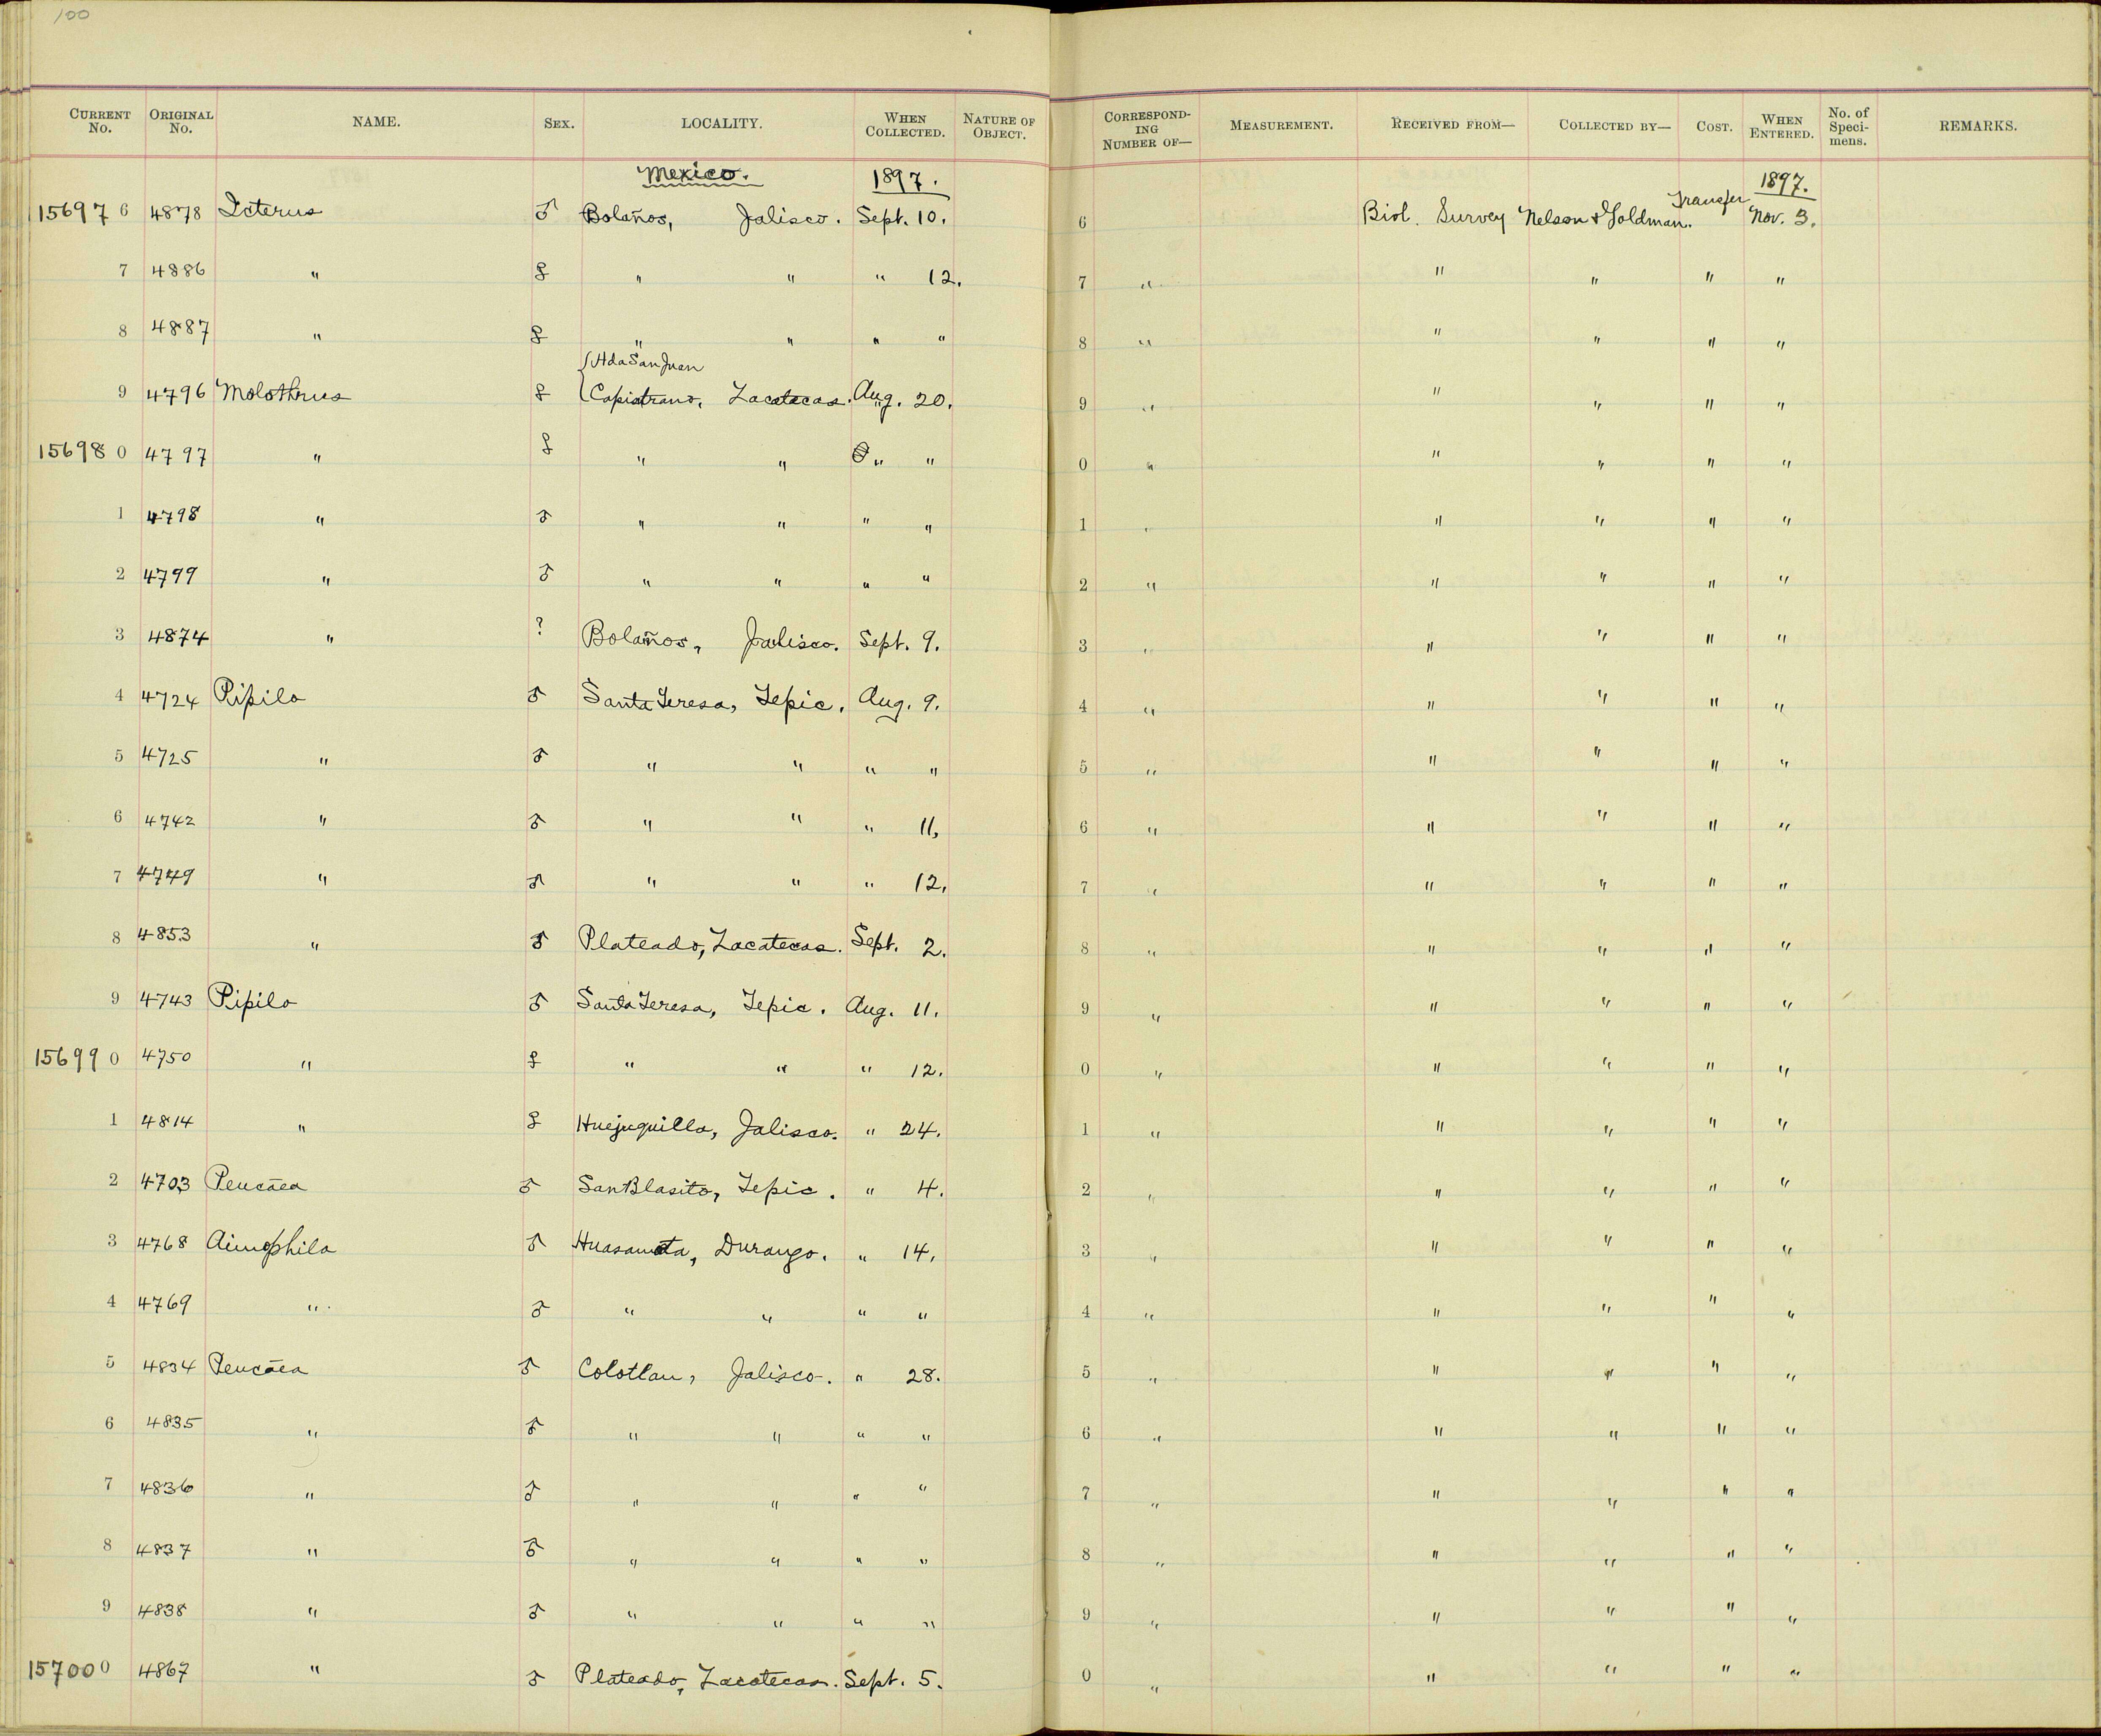 100
CURRENT No. ORIGINAL No. NAME. SEX. LOCALITY. WHEN COLLECTED. NATURE OF OBJECT. CORRESPONDING NUMBER OF— MEASUREMENT. RECEIVED FROM— COLLECTED BY— COST. WHEN ENTERED. No. of Specimens. REMARKS.
Mexico. 1897. 1897.
156976 4878 Icterus ♂ Bolaños, Jalisco. Sept. 10. 6 Biol. Survey Nelson & Goldman. Transfer Nov. 3.
7 4886 " ♀ " " " 12. 7 " " " " "
8 4887 " ♀ " " " " 8 " " " " "
9 4796 Molothrus ♀ {Hda San Juan Capistrano, Zacatecas. Aug. 20. 9 " " " " "
156980 4797 " ♀ " " " " 0 " " " " "
1 4798 " ♂ " " " " 1 " " " " "
2 4799 " ♂ " " " " 2 " " " " "
3 4874 " ? Bolaños, Jalisco. Sept. 9. 3 " " " " "
4 4724 Pipilo ♂ Santa Teresa, Tepic. Aug. 9. 4 " " " " "
5 4725 " ♂ " " " " 5 " " " " "
6 4742 " ♂ " " " 11, 6 " " " " "
7 4749 " ♂ " " " 12, 7 " " " " "
8 4853 " ♂ Plateado, Zacatecas. Sept. 2. 8 " " " " "
9 4743 Pipilo ♂ Santa Teresa, Tepic. Aug. 11. 9 " " " " "
156990 4750 " ♀ " " " 12. 0 " " " " "
1 4814 " ♀ Huejuquilla, Jalisco. " 24. 1 " " " " "
2 4703 Peucæa ♂ San Blasito, Tepic. " 4. 2 " " " " "
3 4768 Aimophila ♂ Huasamota, Durango. " 14, 3 " " " " "
4 4769 " ♂ " " " " 4 " " " " "
5 4834 Peucæa ♂ Colotlan, Jalisco. " 28. 5 " " " " "
6 4835 " ♂ " " " " 6 " " " " "
7 4836 " ♂ " " " " 7 " " " " "
8 4837 " ♂ " " " " 8 " " " " "
9 4838 " ♂ " " " " 9 " " " " "
157000 4867 " ♂ Plateado, Zacatecas. Sept. 5. 0 " " " " "